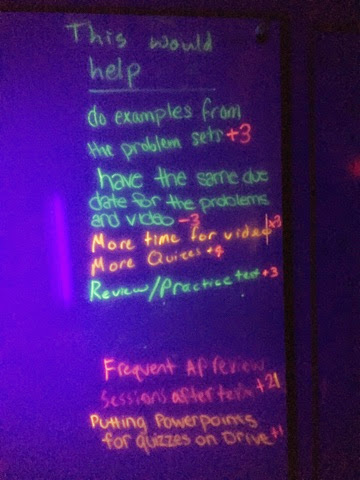 This would
help
do examples from
the problem sets +3
have the same due
date for the problems
and video -3
More time for video +3
More Quizes +4
Review/Practice test +3
Frequent AP review
sessions after term +21
Putting Powerpoints
for quizzes on Drive +1